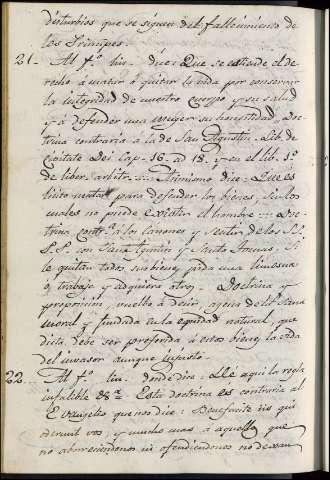 disturbios que se siguen del fallecimiento de
los Principes.
21. Al fº. hic. dice: Que se estiende el de-
recho á matar ó quitar la vida por conservar
la integridad de nuestro cuerpo y su salud
y á defender una muger su honestidad, Doc-
trina contraria á la de San Agustin. Lib. de
Civitate Dei Cap. 16. ad 18. y en el lib. 1º.
de liber. arbitr. Asimismo dice: Que es
licito matar para defender los bienes, sin los
cuales no puede existir el hombre: Doc-
trina contrª. a los canones y sentir de los SS.
P.P. con San Agustin y Santo Thomas. Si
le quitan todos sus bienes, pida una limosna
ó trabaje y adquiera otros. Doctrina y
proposicion, vuelbo á decir, agena de la Sana
moral y fundada en la equidad natural, que
dicta debe ser preferida á estos bienes la vida
del invasor aunque injusto.
22. Al fº. lin. donde dice: He aqui la regla
infalible &ª. Esta doctrina es contraria al
Evangelio que nos dice: Benefacite his qui
oderunt vos, y mucho mas á aquellos que
no aborreciendonos ni ofendiendonos no dexan